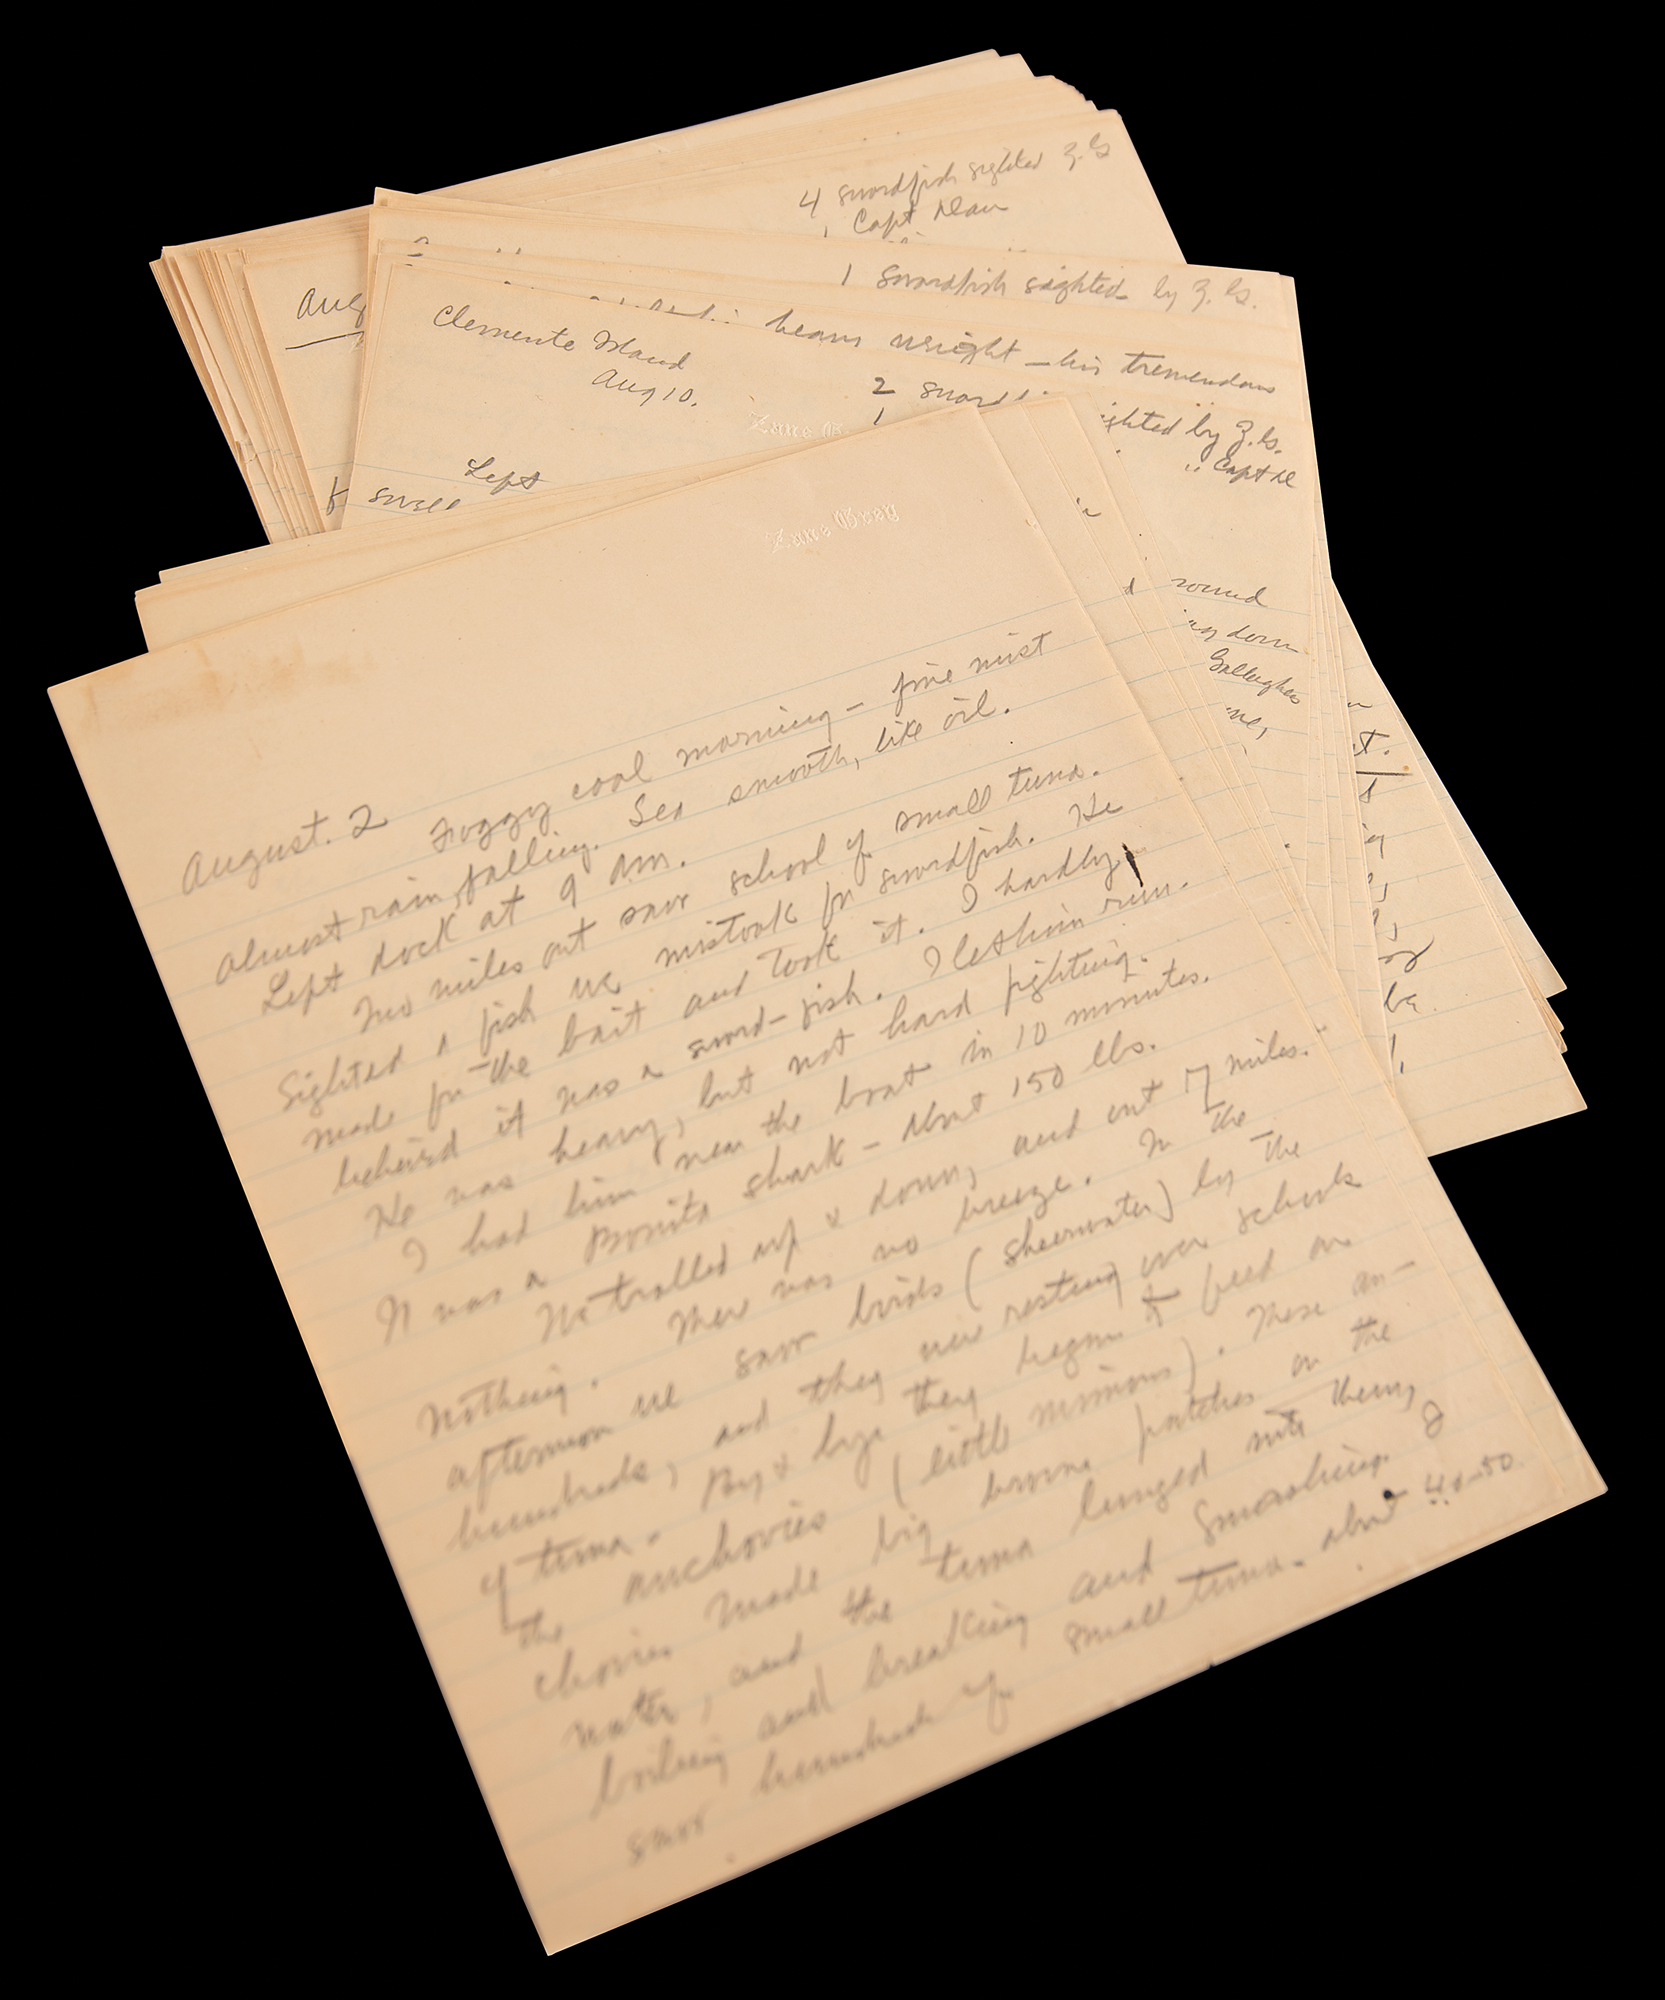 4 swordfish sighted Z.G
1 Capt Dan
1 swordfish sighted by Z.G.
Aug
heavy weight – his tremendous
Clemente Island
Aug 10.
2
1
ighted by Z.G.
" Capt D
Zane G
Left
swell
Zane Grey
round
down
Gallagher
August. 2 Foggy cool morning – fine mist
almost rain, falling. Sea smooth, like oil.
Left dock at 9 A.M.
Two miles out saw school of small tuna.
Sighted a fish we mistook for swordfish. He
made for the bait and took it. I hardly
believed it was a sword-fish. I let him run.
He was heavy, but not hard fighting.
I had him near the boat in 10 minutes.
It was a Bonita shark – about 150 lbs.
We trolled up & down, and out 17 miles.
Nothing. There was no breeze. In the
afternoon we saw birds (sheerwater) by the
hundreds, and they were resting over schools
of tuna. By & bye they began to feed on
the anchovies (little minnows). These an-
chovies made big brown patches on the
water, and the tuna lunged into them,
boiling and breaking and smashing. I
saw hundreds of small tuna – about 40–50.